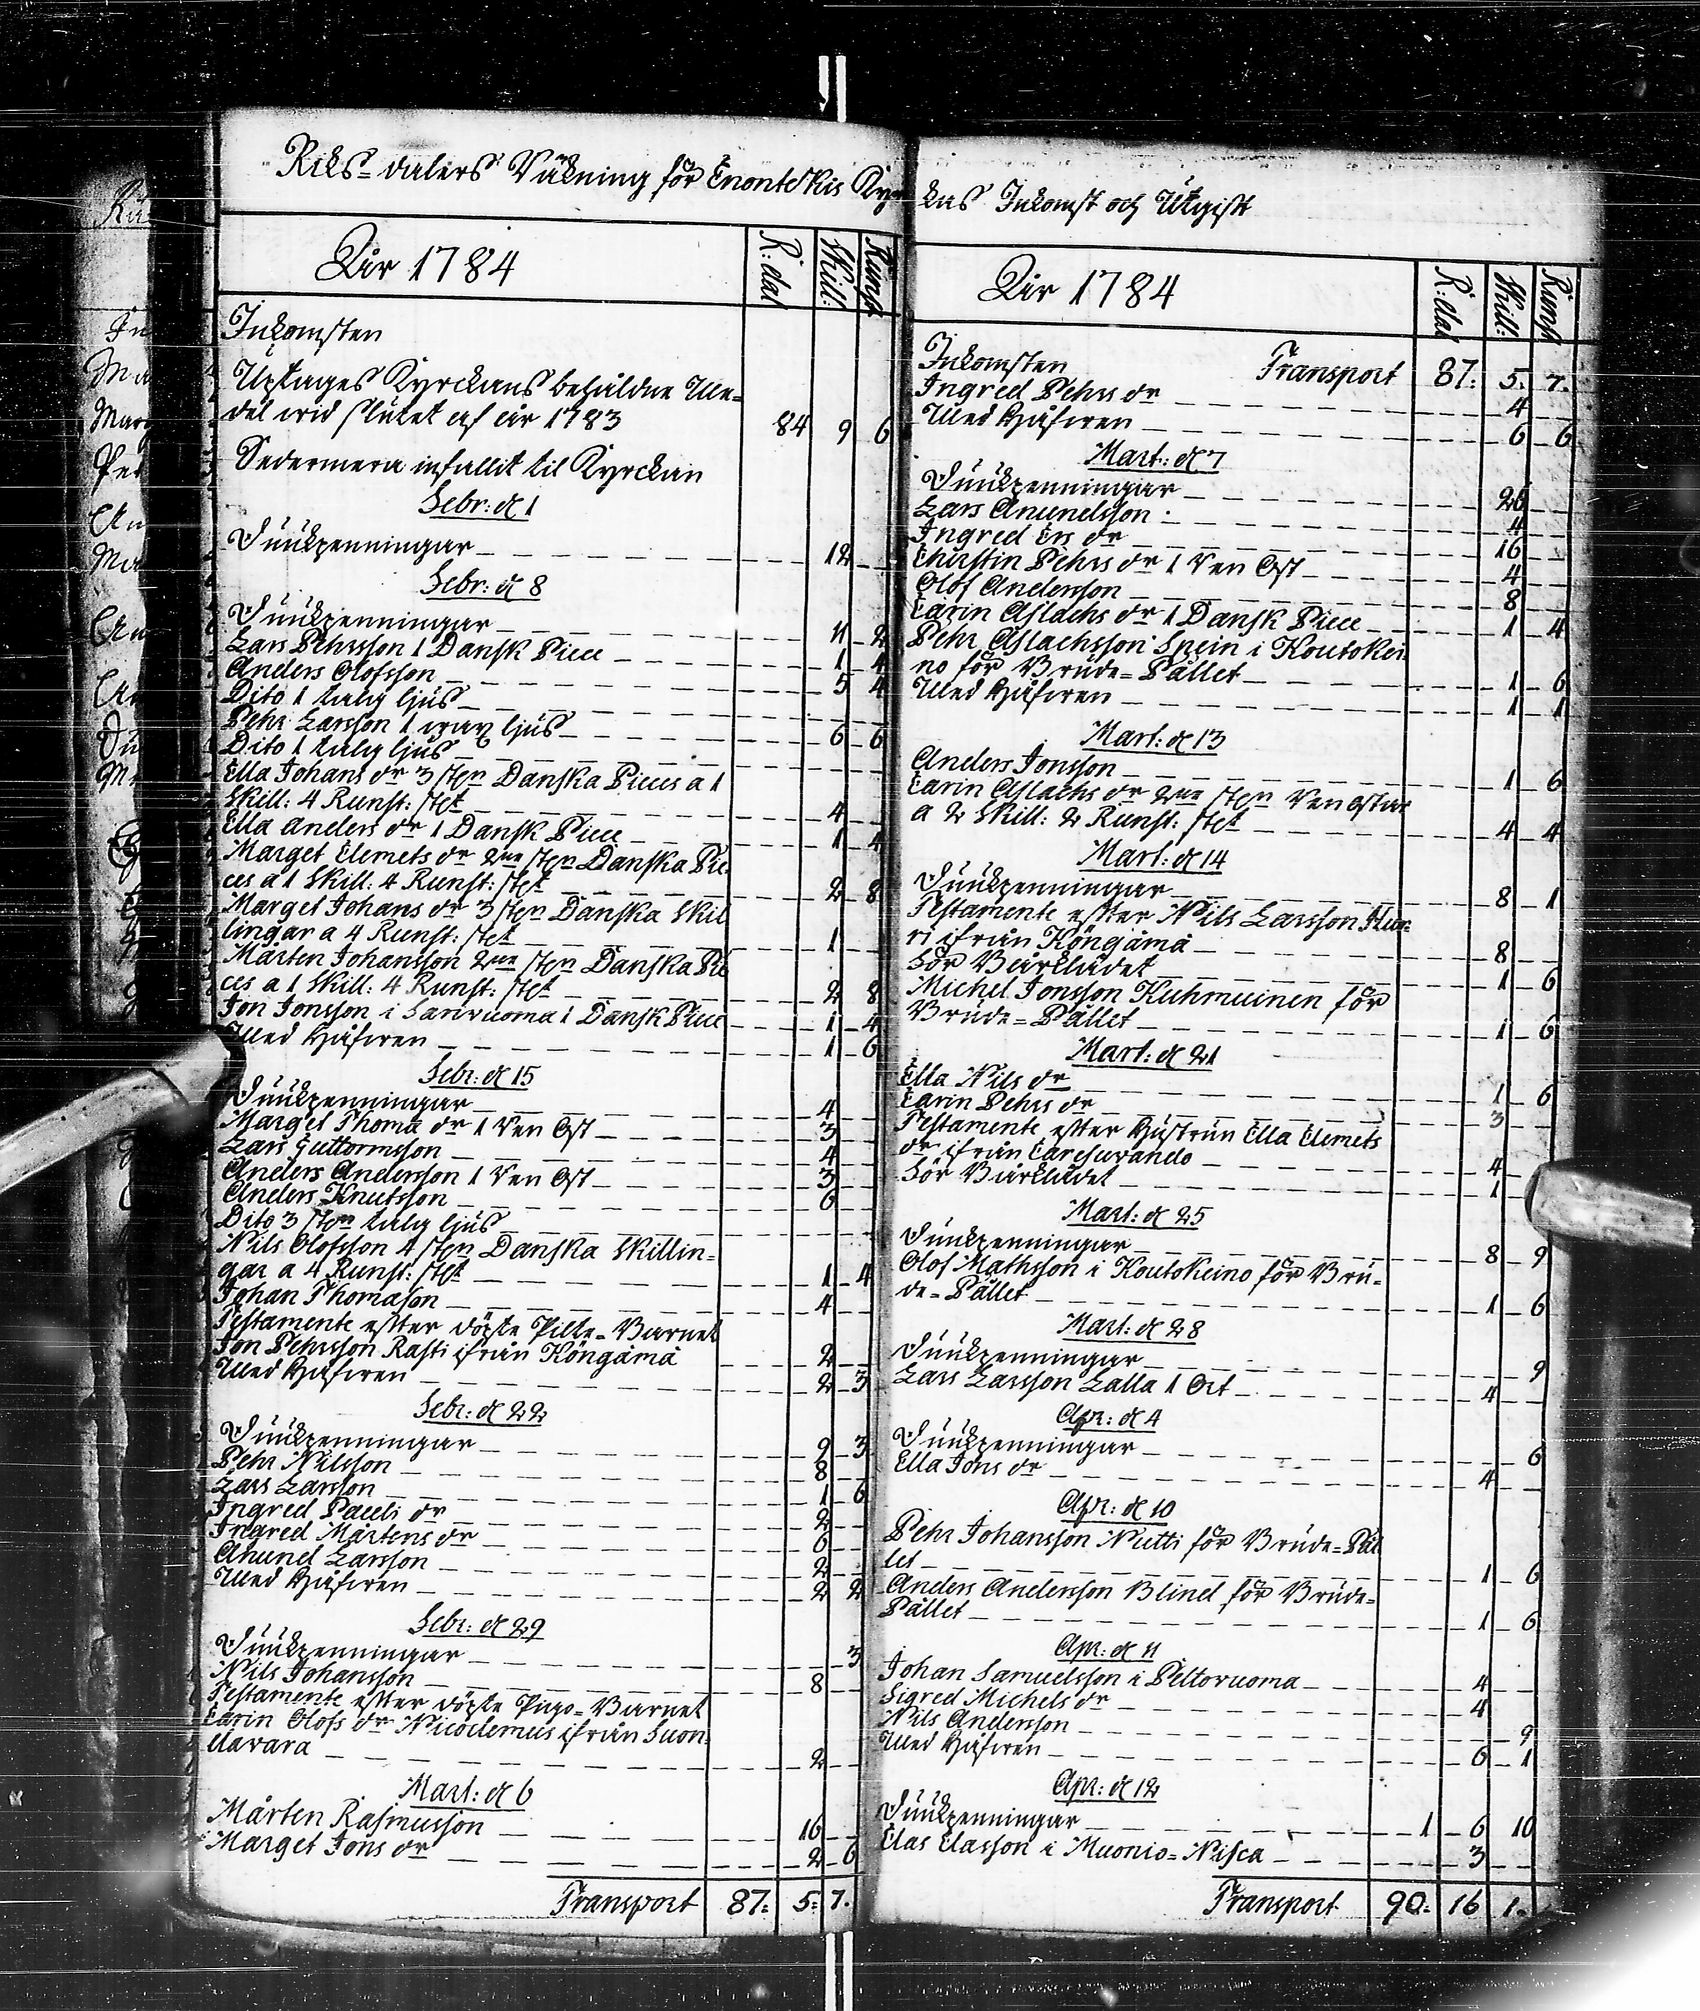 Riks-dalers Räkning för Enontekis Kyrckas Inkomst och Utgift
Åhr 1784
R:dal Skill: Runst
Inkomsten
Uptages Kyrckans behåldne Me-
del wid slutet af år 1783 84 9 6
Sedermera infallit til Kyrckan
Febr: d 1
Siukpenningar 12
Febr: d 8
Siukpenningar 11 2
Lars Pehrsson 1 Dansk Piece 1 4
Anders Olofsson 5 4
Dito 1 talg ljus
Pehr Larsson 1 wax ljus 6 6
Dito 1 talg ljus
Ella Johans dr 3 styn Danska Pieces a 1
Skill: 4 Runst: stet 4
Ella Anders dr 1 Dansk Piece 1 4
Marget Clemets dr 2ne styn Danska Pie-
ces a 1 Skill: 4 Runst: stet 2 8
Marget Johans dr 3 styn Danska Skil
lingar a 4 Runst: stet 1
Mårten Johansson 2ne styn Danska Pie
ces a 1 Skill: 4 Runst: stet 2 8
Jon Jonsson i Sarivuoma 1 Dansk Piece 1 4
Med Håfwen 1 6
Febr: d 15
Siukpenningar 4
Marget Thoma dr 1 Ren Ost 3
Lars Guttormsson 4
Anders Andersson 1 Ren Ost 3
Anders Knutsson 6
Dito 3 styn talg ljus
Nils Olofsson 4 styn Danska Skillin-
gar a 4 Runst: stet 1 4
Johan Thomason 4
Testamente efter döpte Pilte-Barnet
Jon Pehrsson Rasti ifrån Köngämä 2
Med Håfwen 2 3
Febr: d 22
Siukpenningar 9 3
Pehr Nilsson 8
Lars Larsson 1 6
Ingred Pauls dr 2
Ingred Mårtens dr 6
Anund Larsson 2
Med Håfwen 2 2
Febr: d 29
Siukpenningar 3
Nils Johansson 8
Testamente efter döpte Pigo-Barnet
Carin Olofs dr Nicodemus ifrån Suon-
davara 2
Mart: d 6
Mårten Rasmusson 16
Marget Jons dr 2 6
Transport 87: 5: 7.
Åhr 1784
R:dal Skill: Runst
Inkomsten Transport 87: 5. 7.
Ingred Pehrs dr 4
Med Håfwen 6 6
Mart: d 7
Siukpenningar 26
Lars Anundsson 4
Ingred Ers dr 16
Christin Pehrs dr 1 Ren Ost 4
Olof Andersson 8
Carin Aslachs dr 1 Dansk Piece 1 4
Pehr Aslachsson Spein i Koutokei-
no för Brude-Pället 1 6
Med Håfwen 1 1
Mart: d 13
Anders Jonsson 1 6
Carin Aslachs dr 2ne styn Ren ostar
a 2 Skill: 2 Runst: stet 4 4
Mart: d 14
Siukpenningar 8 1
Testamente efter Nils Larsson Hur-
ri ifrån Köngämä 8
För Bårklädet 1 6
Michel Jonsson Kuhmuinen för
Brude-Pället 1 6
Mart: d 21
Ella Nils dr 1 6
Carin Pehrs dr 3
Testamente efter Hustrun Ella Clemets
dr ifrån Caresuvando 4
För Bårklädet 1
Mart: d 25
Siukpenningar 8 9
Olof Mathsson i Koutokeino för Bru-
de-Pället 1 6
Mart: d 28
Siukpenningar 9
Lars Larsson Lalla 1 Ort 4
Apr: d 4
Siukpenningar 6
Ella Jons dr 4
Apr: d 10
Pehr Johansson Nutti för Brude-Päl
let 1 6
Anders Andersson Blind för Brude-
Pället 1 6
Apr: d 11
Johan Samuelsson i Peltovuoma 4
Sigred Michels dr 4
Nils Andersson 9
Med Håfwen 6 1
Apr: d 12
Siukpenningar 1 6 10
Clas Classon i Muonio-Nisca 3
Transport 90: 16 1.